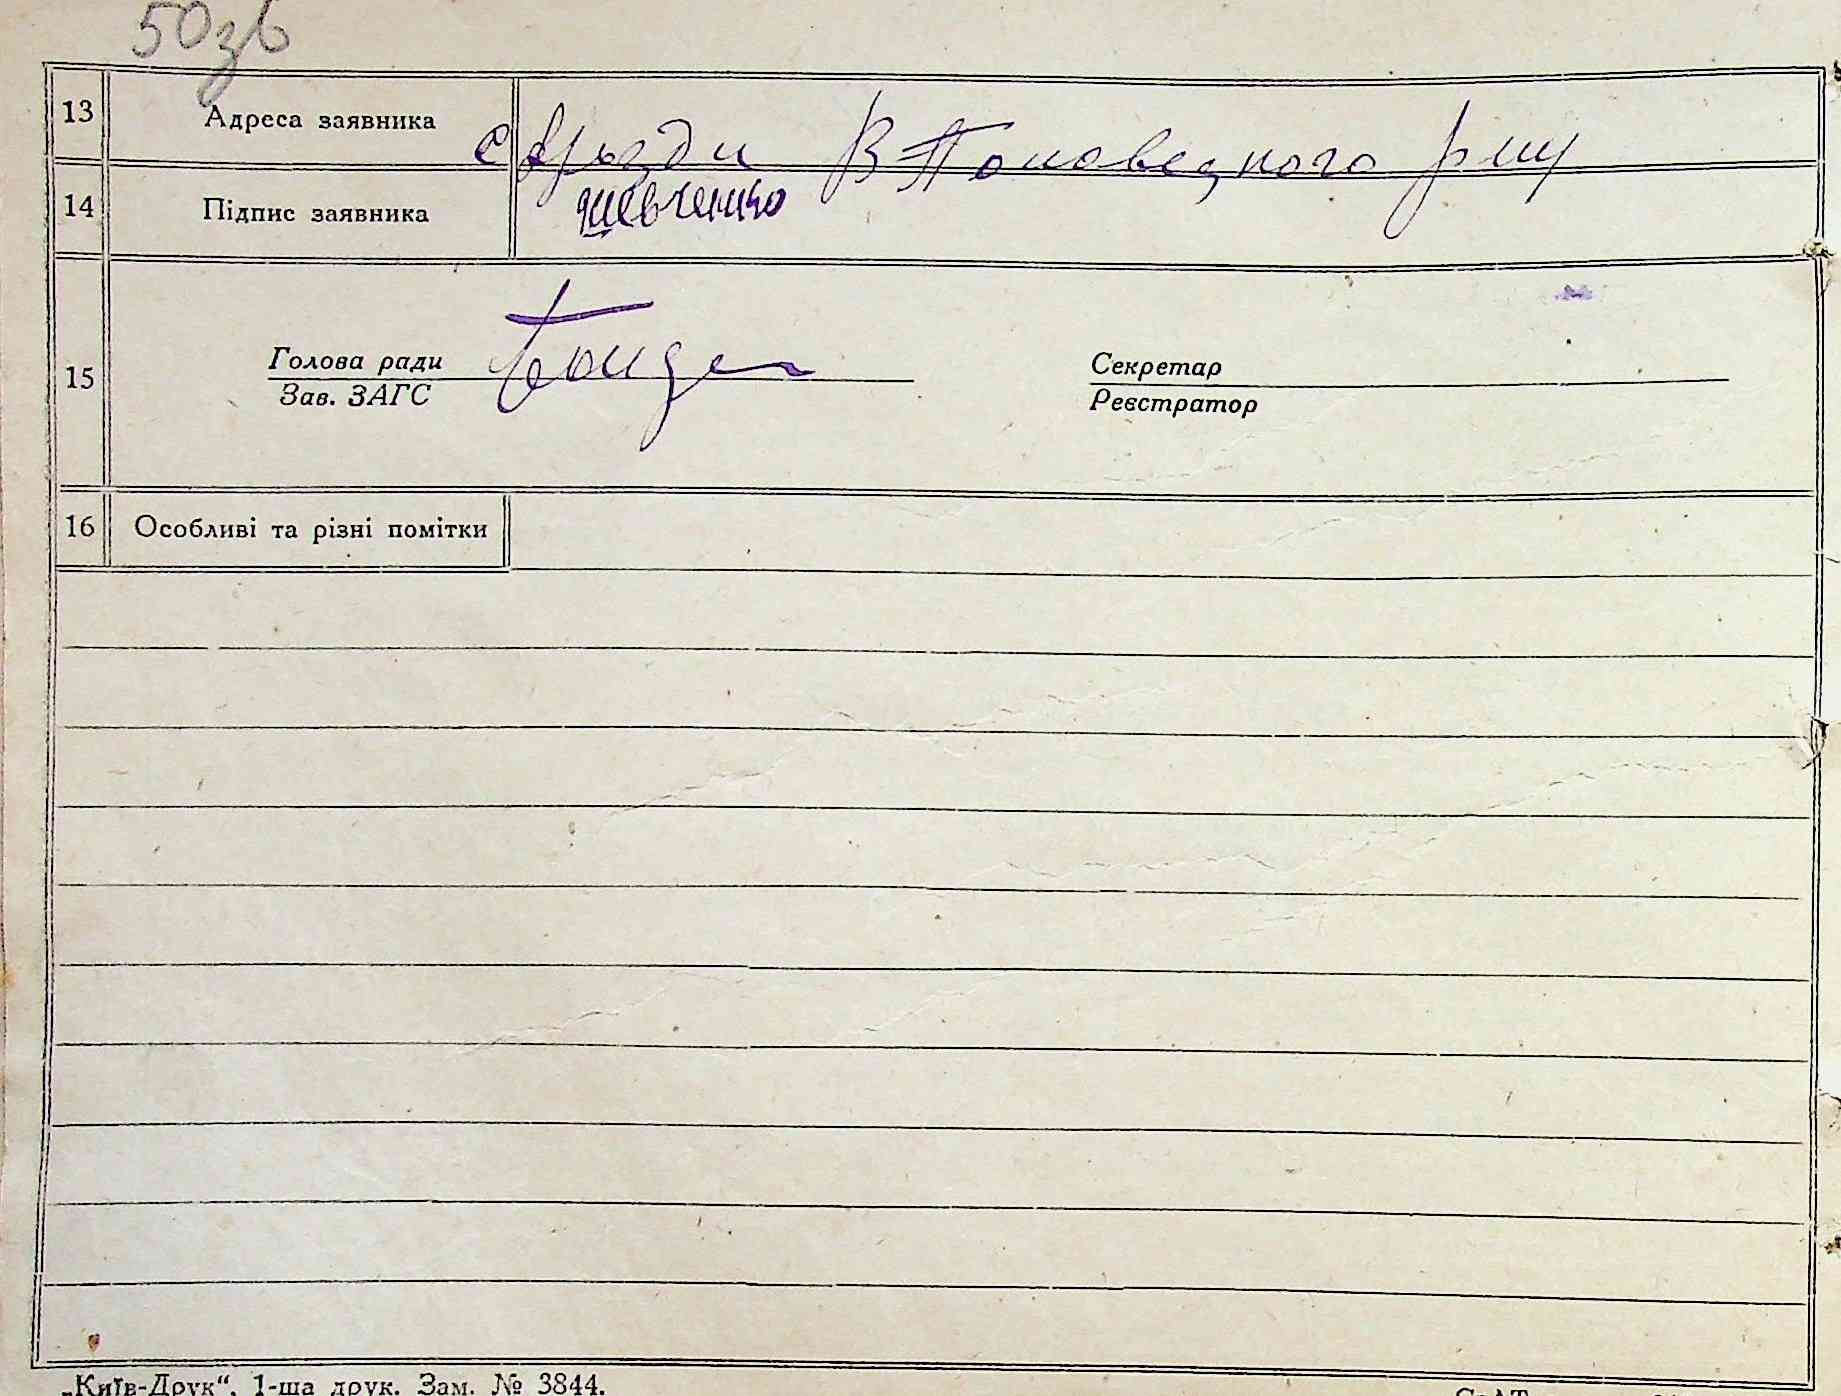 50зв
13 Адреса заявника с Дрозди В Половецкого р-ну
14 Підпис заявника Шевченко
15 Голова ради Секретар
Зав. ЗАГС Реєстратор
16 Особливі та різні помітки
„Київ-Друк“, 1-ша друк. Зам. № 3844.